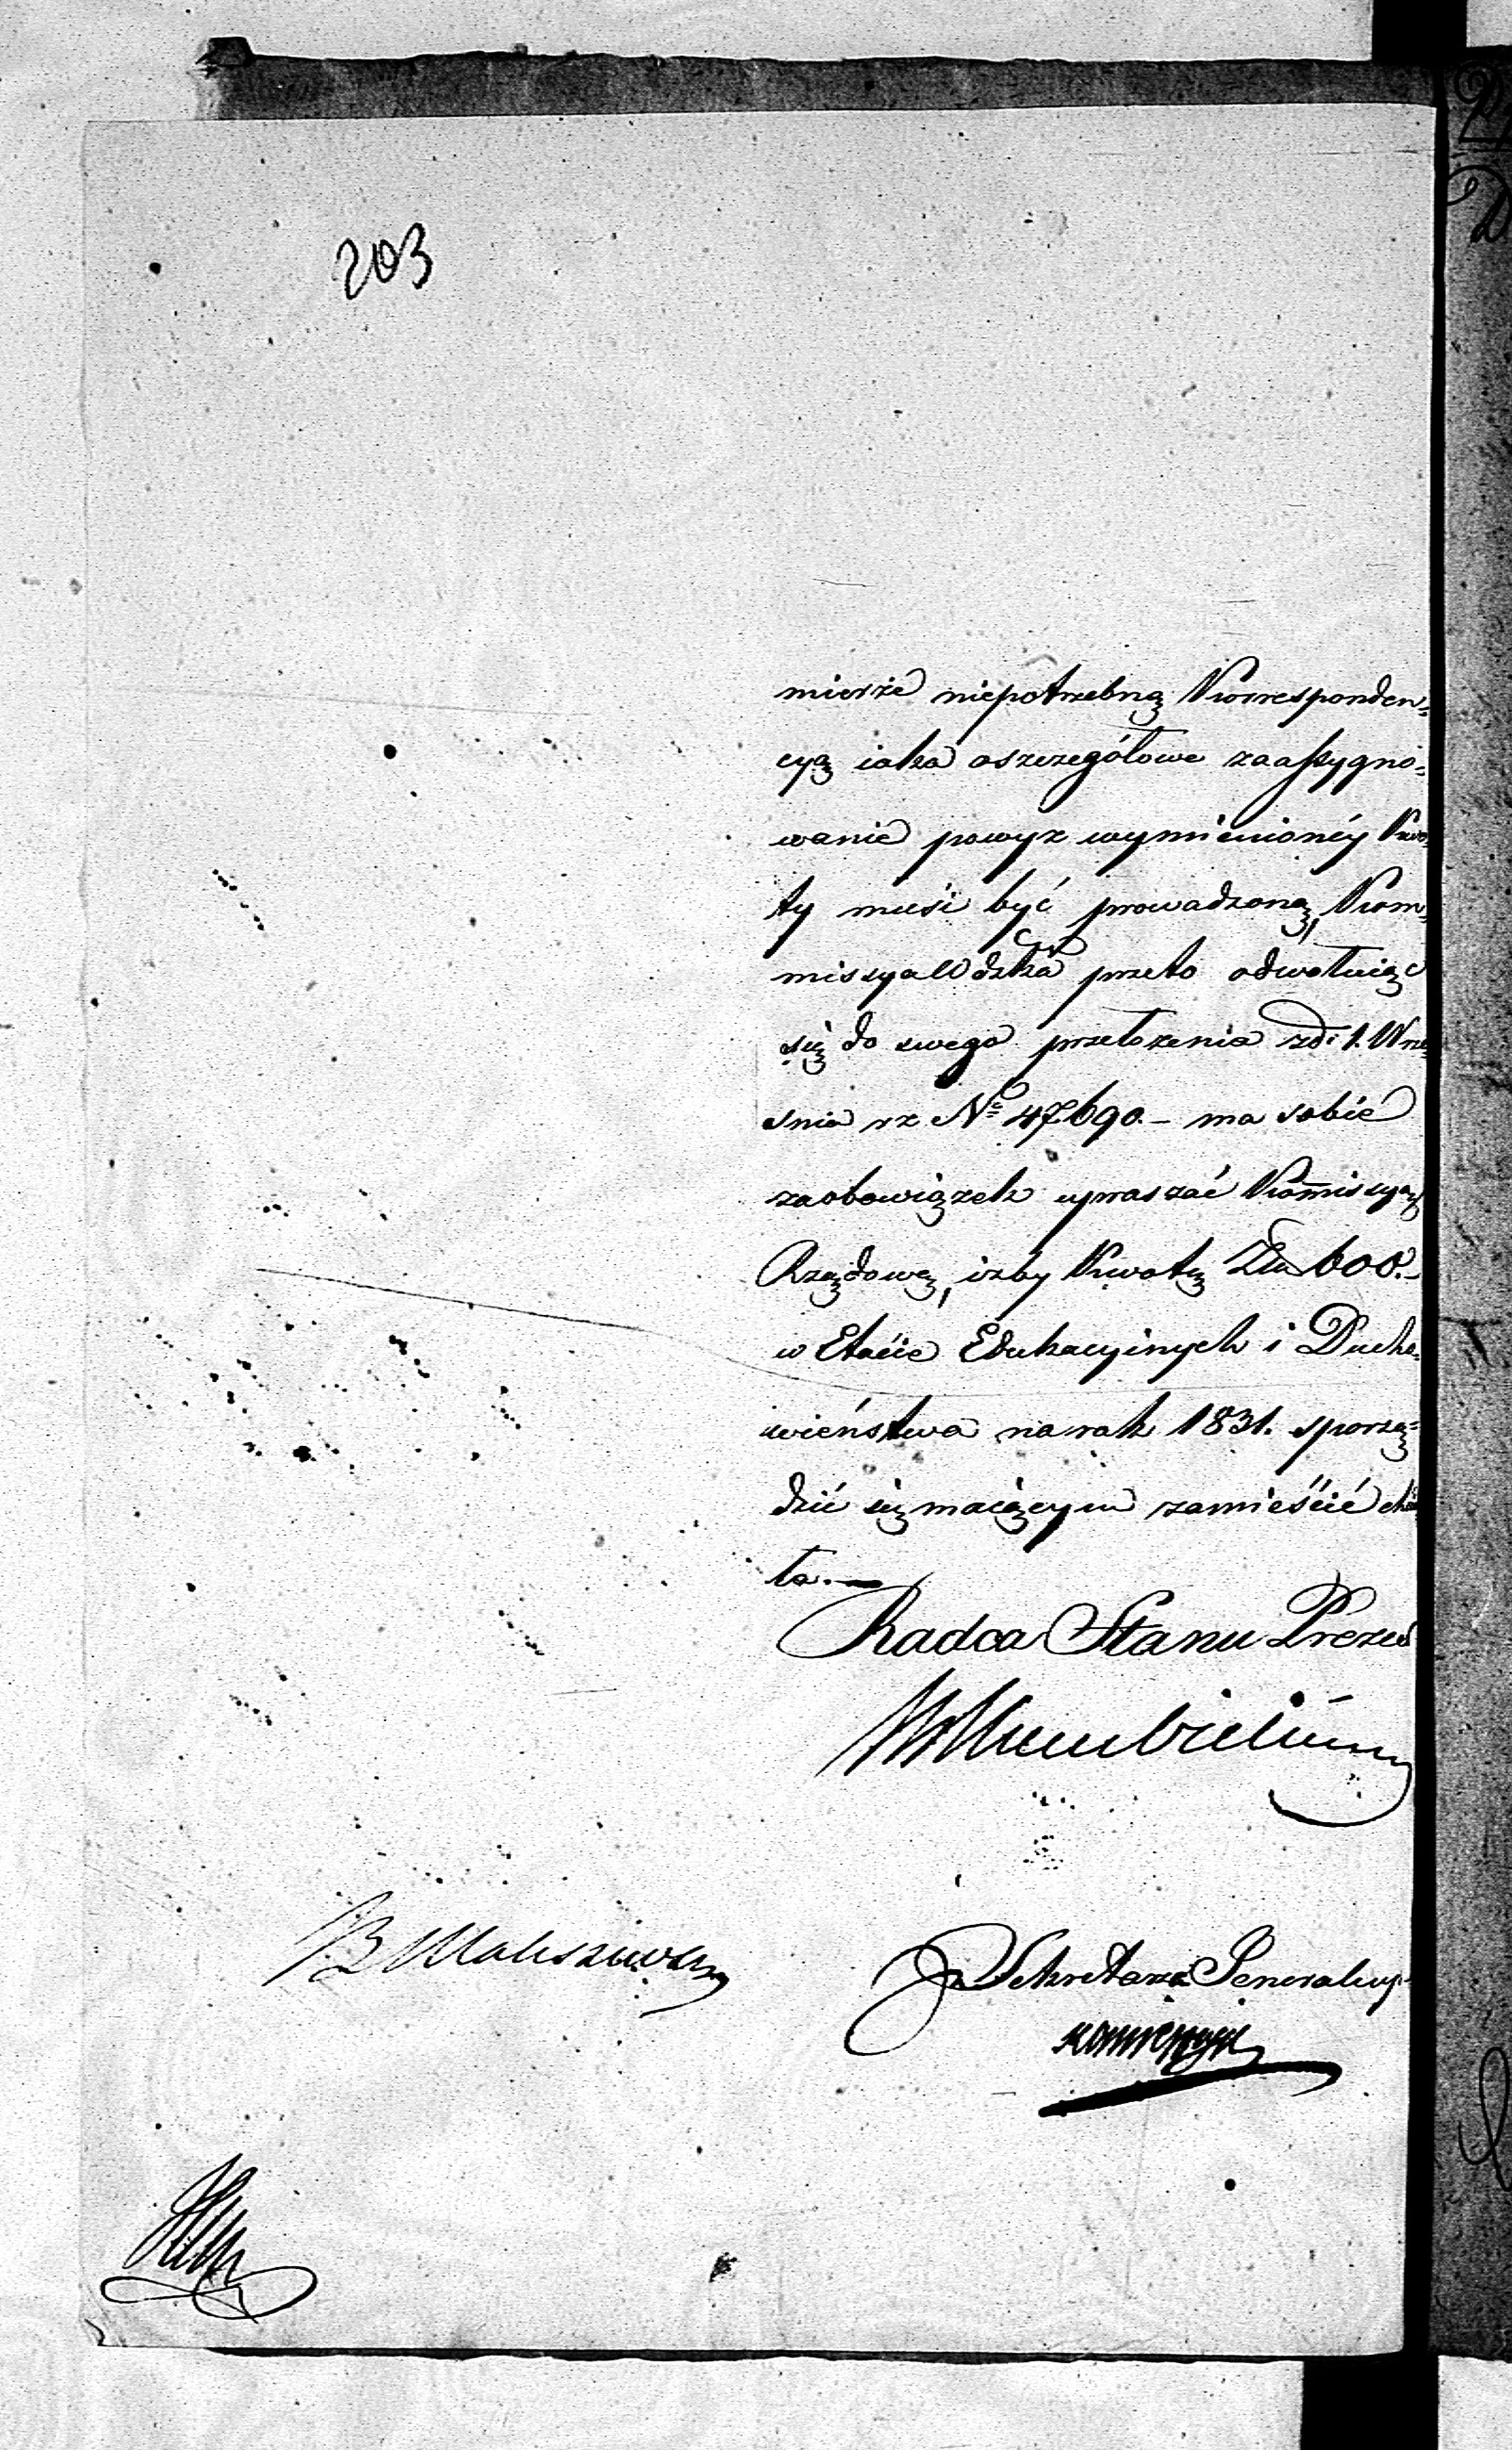 203
mierze niepotrzebną Korresponden=
cyą iaka oszczegółowe zaassygno=
wanie powyż wymienionéy Kwo=
ty musi być prowadzoną, Kom=
missya Wdzka przeto odwołuiąc
się do swego przełożenia zd: 1. Wrze
snia rz No 47690.- ma sobie
zaobowiązek upraszać Kommissyą
Rządową, iżby Kwotę Złp 600.-
w Etacie Edukacyinych i Ducho=
wieństwa na rok 1831. sporzą=
dzić się maiącym zamieścić chcia
ła.—
Radca Stanu Prezes
Sekretarz Generalny